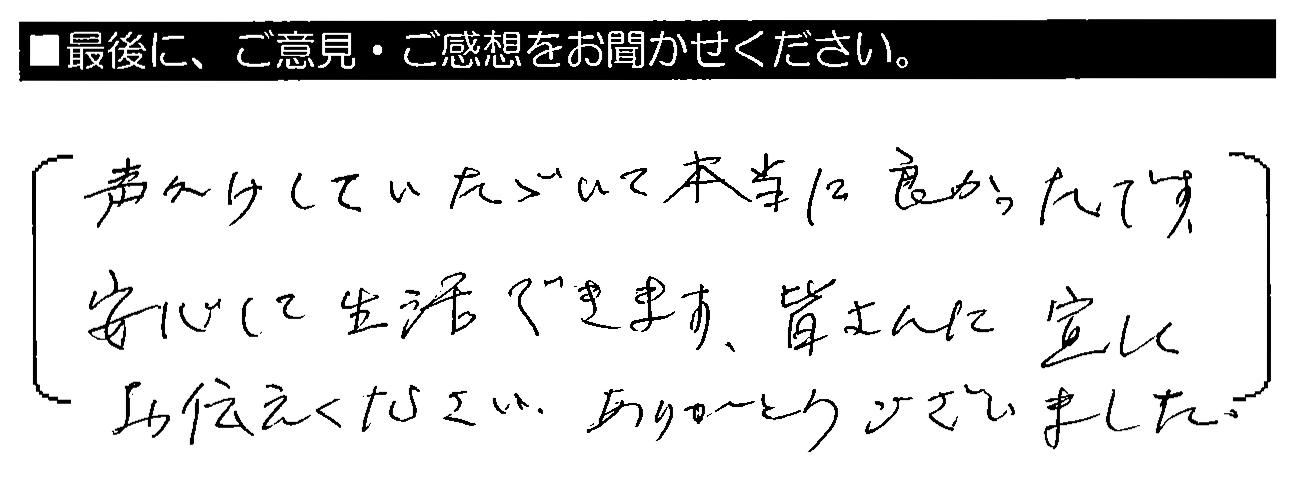 ■最後に、ご意見・ご感想をお聞かせください。
声かけしていただいて本当に良かったです、
安心して生活できます、皆さんに宜しく
お伝えください。ありがとうございました。